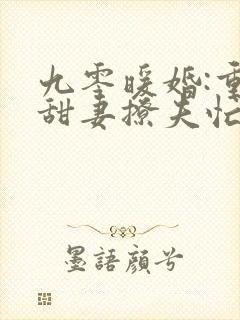 九零暖婚:重
甜妻撩夫忙
墨語顔兮